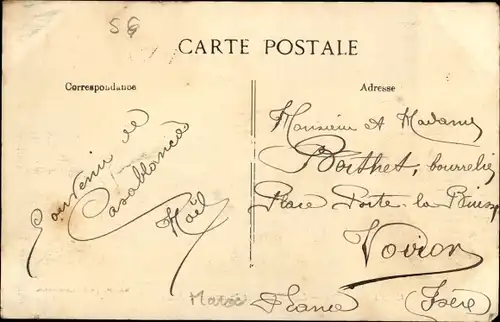 56
CARTE POSTALE
Correspondance
Souvenir de
Casablanca
Noël
Adresse
Monsieur et Madame
Bothet, bourrelier
Place Porte-la-Buisse
Voiron
(Isère)
France
Maroc